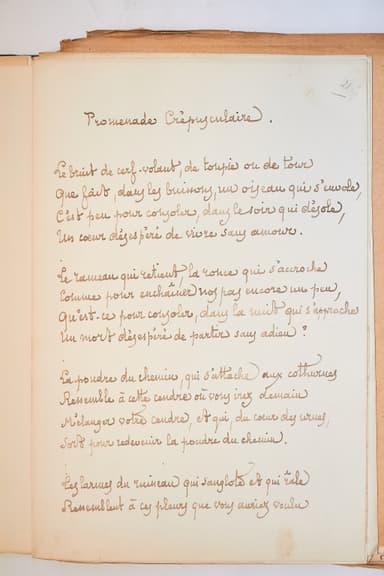 21
Promenade Crépusculaire.
Le bruit de cerf-volant, de toupie ou de tour
Que fait, dans les buissons, un oiseau qui s'envole,
C'est peu pour consoler, dans le soir qui désole,
Un cœur désespéré de vivre sans amour.
Le rameau qui retient, la ronce qui s'accroche
Comme pour enchaîner nos pas encore un peu,
Qu'est-ce pour consoler, dans la nuit qui s'approche
Un mort désespéré de partir sans adieu ?
La poudre du chemin, qui s'attache aux cothurnes
Ressemble à cette cendre où vous irez demain
Mélanger votre cendre, et qui, du cœur des urnes,
Sort pour redevenir la poudre du chemin.
Les larmes du ruisseau qui sanglote et qui râle
Ressemblent à ces pleurs que vous auriez voulu